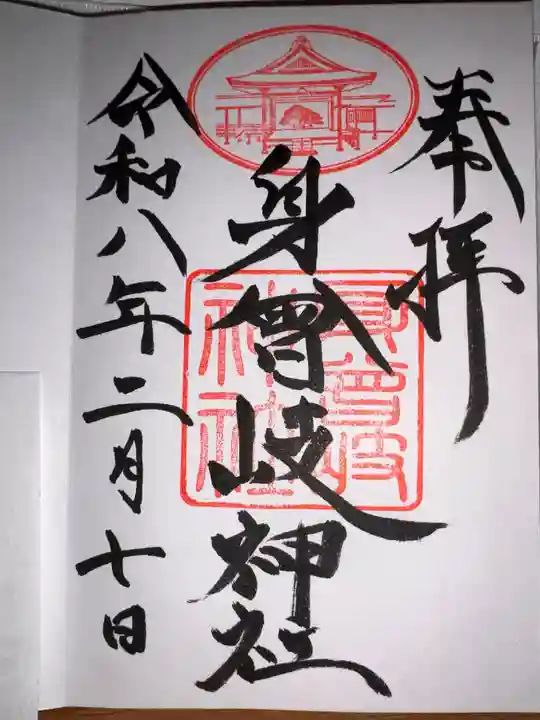 奉拝
身曾岐神社
身曾岐
神社
令和八年二月七日